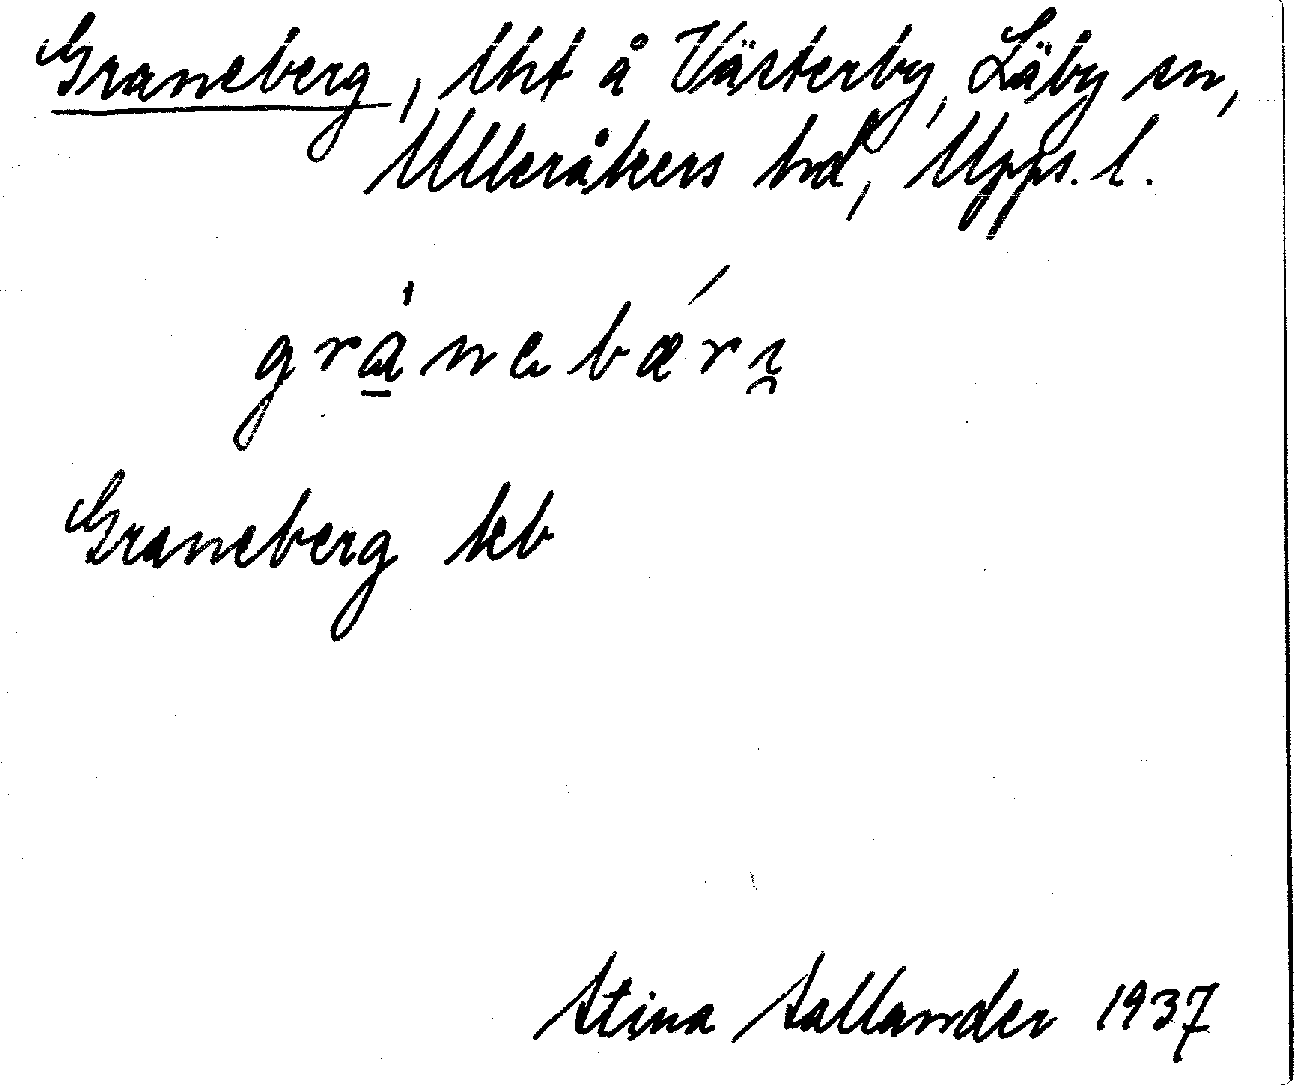 Graneberg, lht å Västerby, Läby sn,
Ulleråkers hd, Upps. l.
grànebǽri̯
Graneberg kb
Stina Sallander 1937